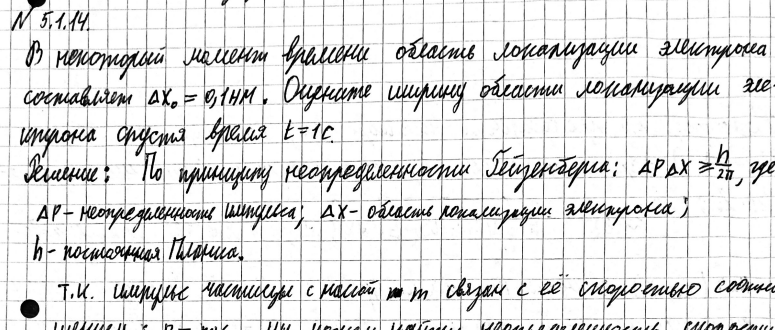 N 5.1.14.
В некоторый момент времени область локализации электрона
составляет ΔX₀ = 0,1 нм. Оцените ширину области локализации эле-
ктрона спустя время t = 1 с.
Решение: По принципу неопределенности Гейзенберга: ΔP ΔX ≥ h/2π, где
ΔP - неопределенность импульса; ΔX - область локализации электрона;
h - постоянная Планка.
Т.к. импульс частицы с массой m связан с её скоростью